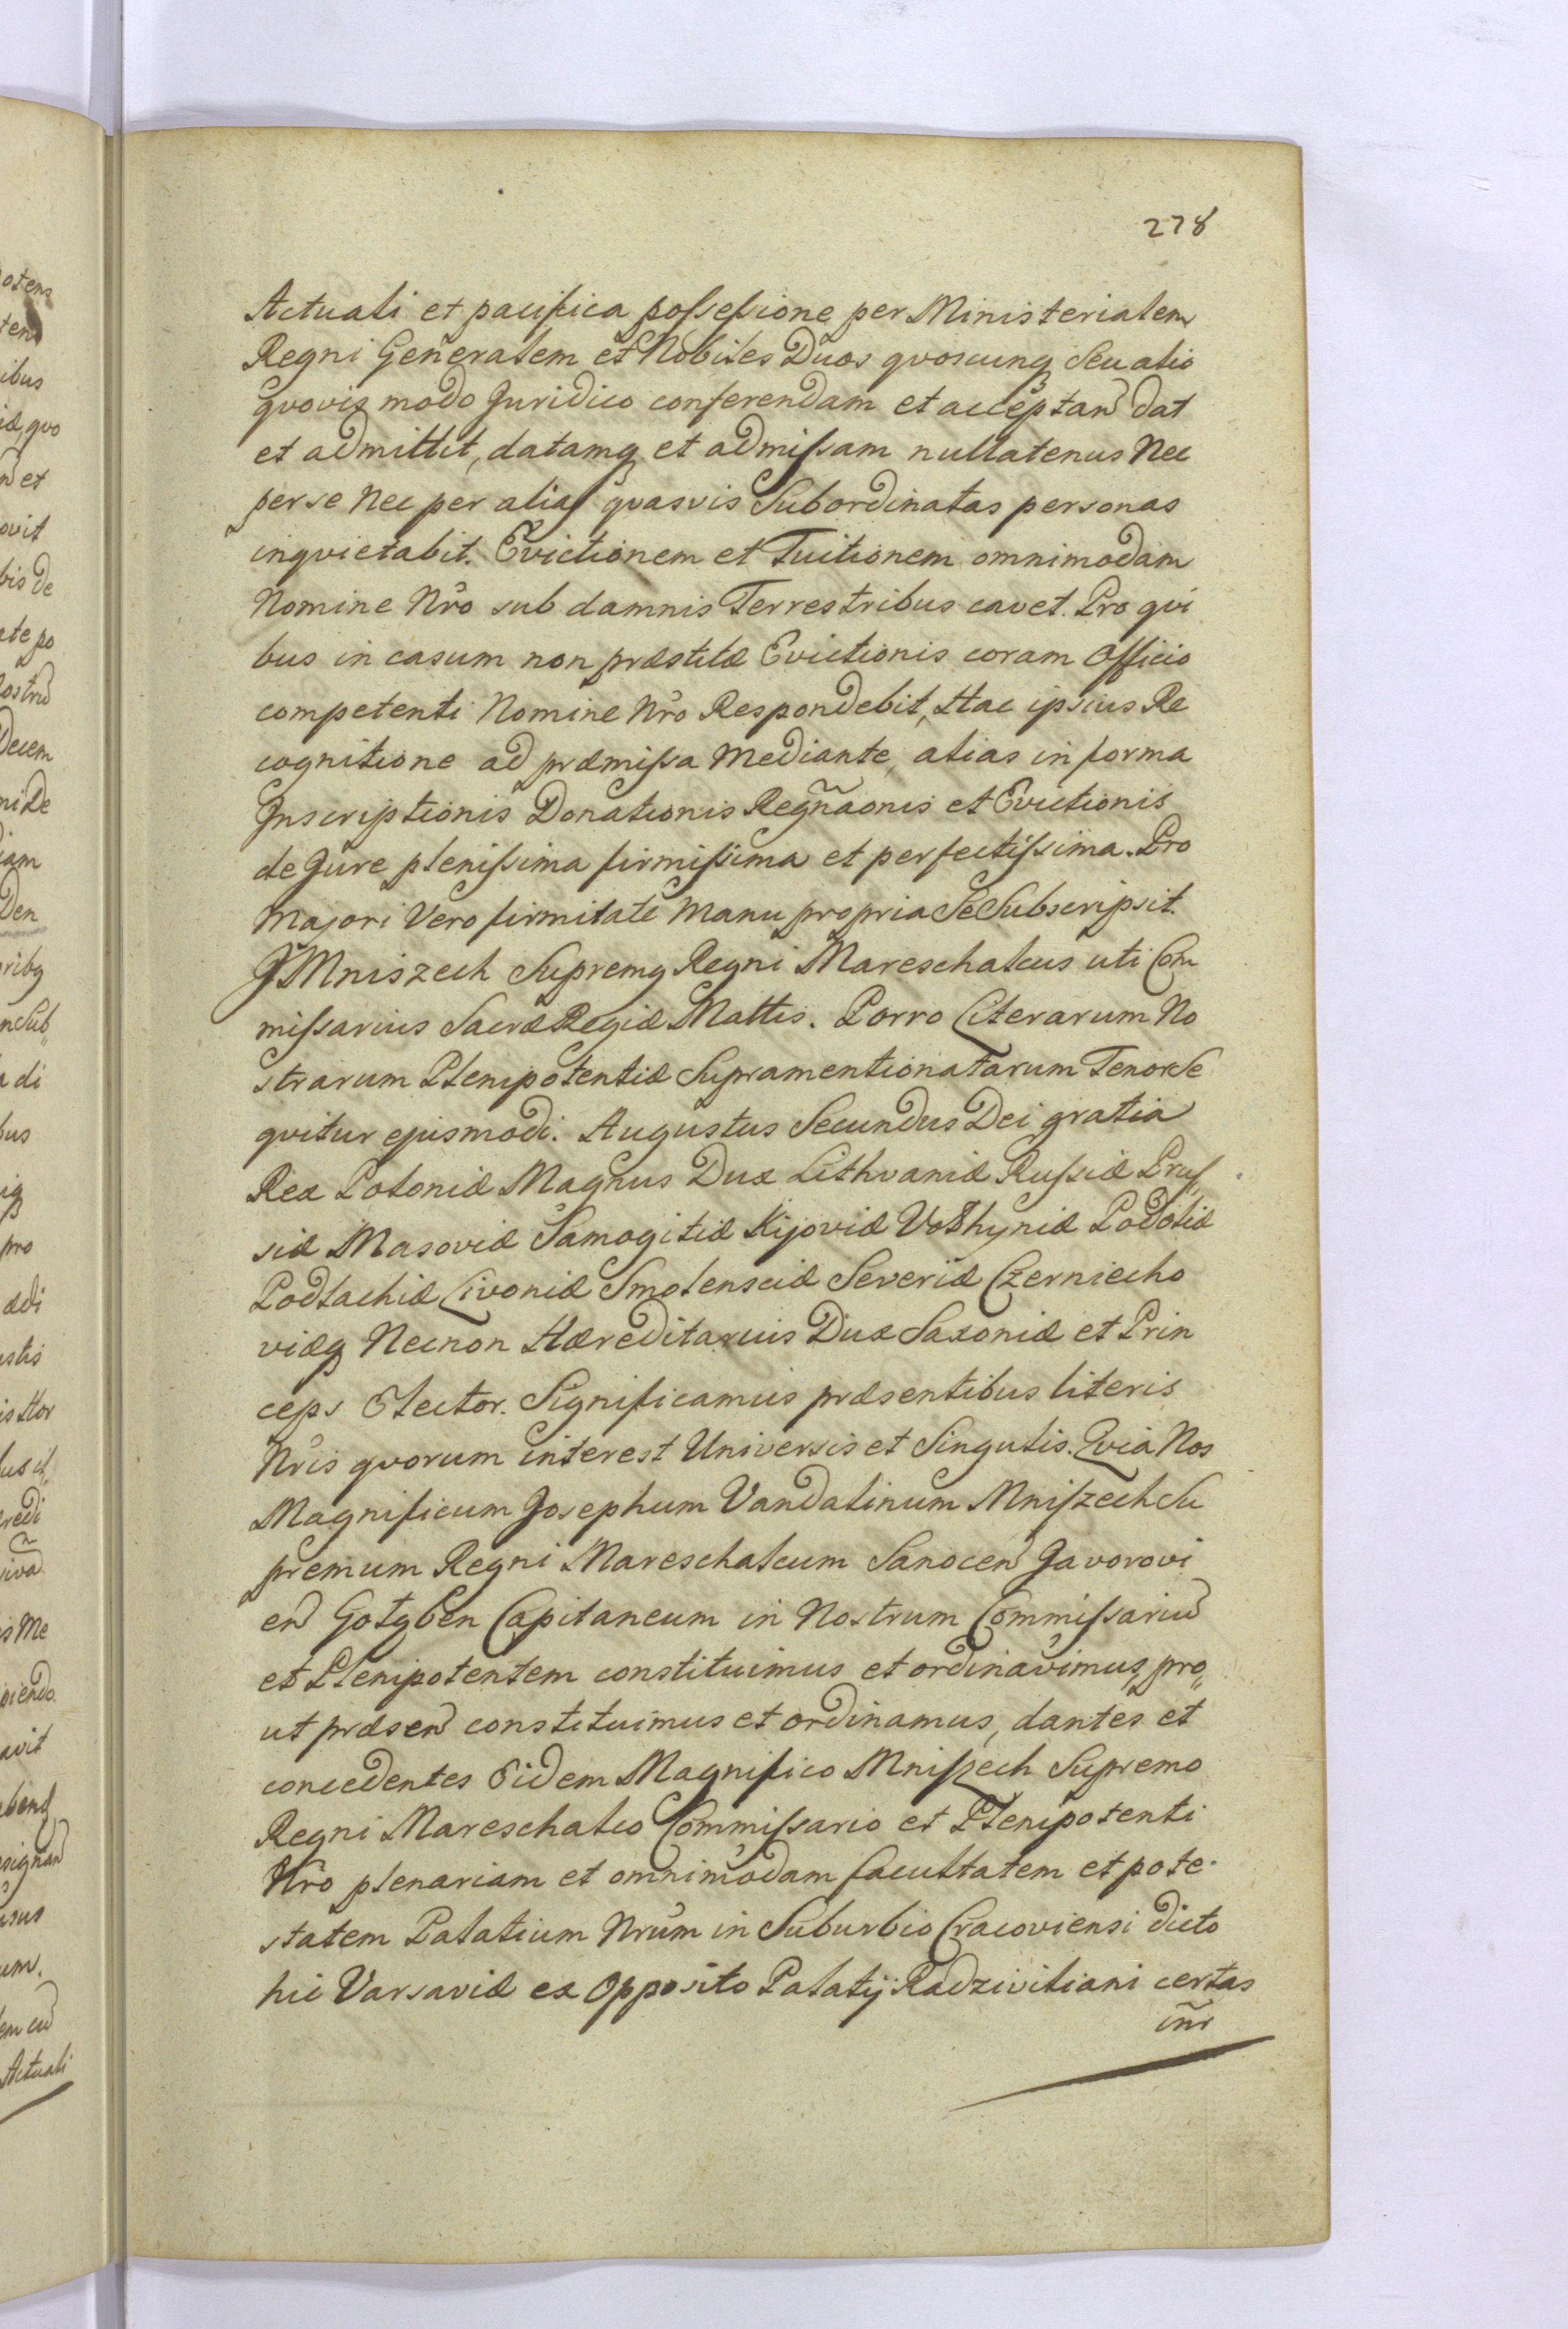 278
Actuali et pacifica possessione per Ministerialem
Regni Generalem et Nobiles Duos qvoscunq Seu alio
qvovis modo Juridico conferendam et acceptan dat
et admittit, datamq et admissam nullatenus Nec
per se Nec per alias qvasvis Subordinatas personas
inqvietabit. Evictionem et Tuitionem omnimodam
Nomine Nro sub damnis Terrestribus cavet. Pro qvi
bus in casum non præstitæ Evictionis coram Officio
competenti Nomine Nro Respondebit, Hac ipsius Re
cognitione ad præmissa Mediante, alias in forma
Inscriptionis Donationis Regnãonis et Evictionis
de Jure plenissima firmissima et perfectissima. Pro
Majori Vero firmitate Manu propria Se Subscripsit.
J Mniszech Supremq Regni Mareschalcus uti Com
missarius Sacræ Regiæ Mattis. Porro Literarum No
strarum Plenipotentiæ Supramentionatarum Tenor Se
qvitur ejusmodi. Augustus Secundus Dei gratia
Rex Poloniæ Magnus Dux Lithvaniæ Russiæ Prus
siæ Masoviæ Samogitiæ Kijoviæ Volhyniæ Podoliæ
Podlachiæ Livoniæ Smolensciæ Severiæ Czerniecho
viæq Necnon Hæreditarius Dux Saxoniæ et Prin
ceps Elector. Significamus præsentibus literis
Nris qvorum interest Universis et Singulis. Qvia Nos
Magnificum Josephum Vandalinum Mniszech Su
premum Regni Mareschalcum Sanocen Javorovi
en Golgben Capitaneum in Nostrum Commissariu
et Plenipotentem constituimus et ordinavimus, pro„
ut præsen constituimus et ordinamus, dantes et
concedentes Eidem Magnifico Mniszech Supremo
Regni Mareschalco Commissario et Plenipotenti
Nro plenariam et omnimodam facultatem et pote-
statem Palatium Nrum in Suburbio Cracoviensi dicto
hic Varsaviæ ex Opposito Palatij Radziviliani certas
inr